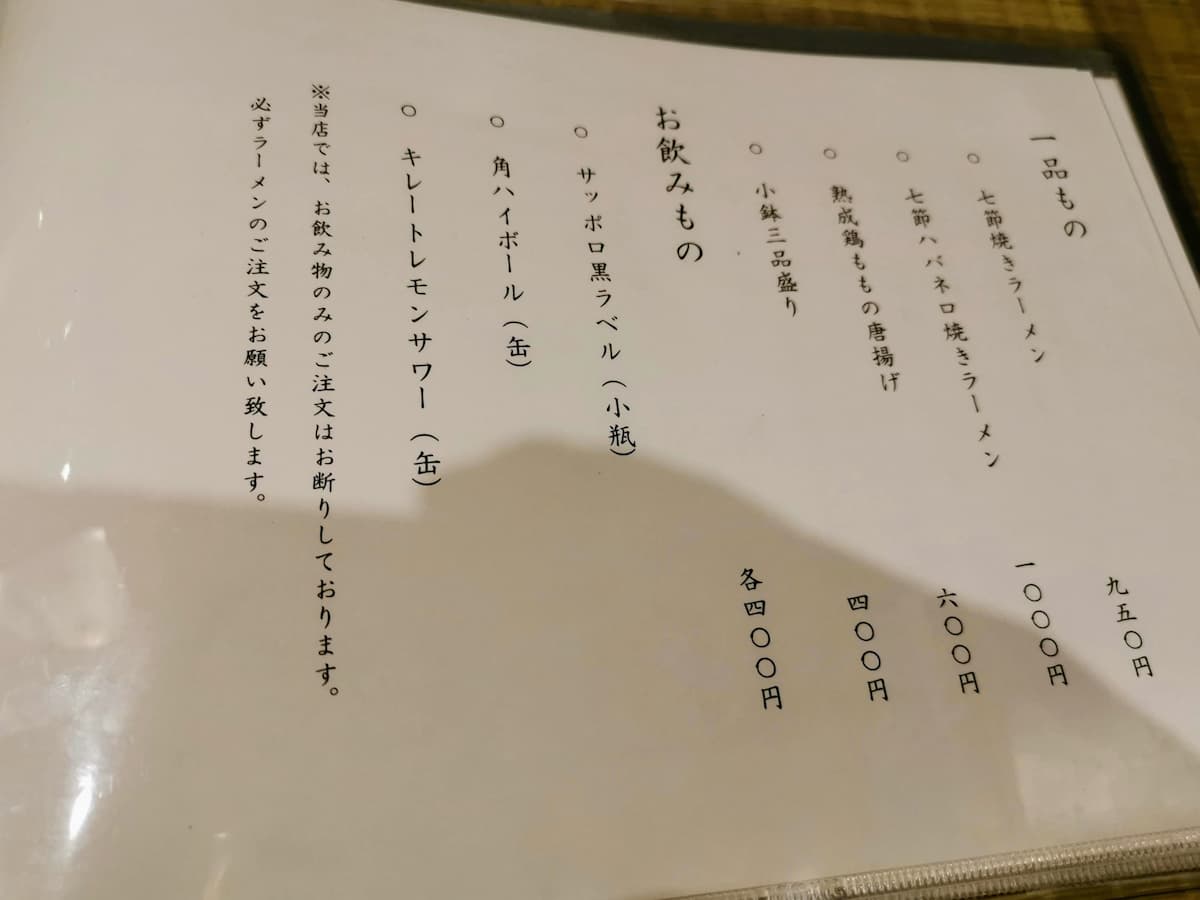 一品もの
○ 七節焼きラーメン 九五〇円
○ 七節ハバネロ焼きラーメン 一〇〇〇円
○ 熟成鶏ももの唐揚げ 六〇〇円
○ 小鉢三品盛り 四〇〇円
お飲みもの 各四〇〇円
○ サッポロ黒ラベル（小瓶）
○ 角ハイボール（缶）
○ キレートレモンサワー（缶）
※当店では、お飲み物のみのご注文はお断りしております。
必ずラーメンのご注文をお願い致します。